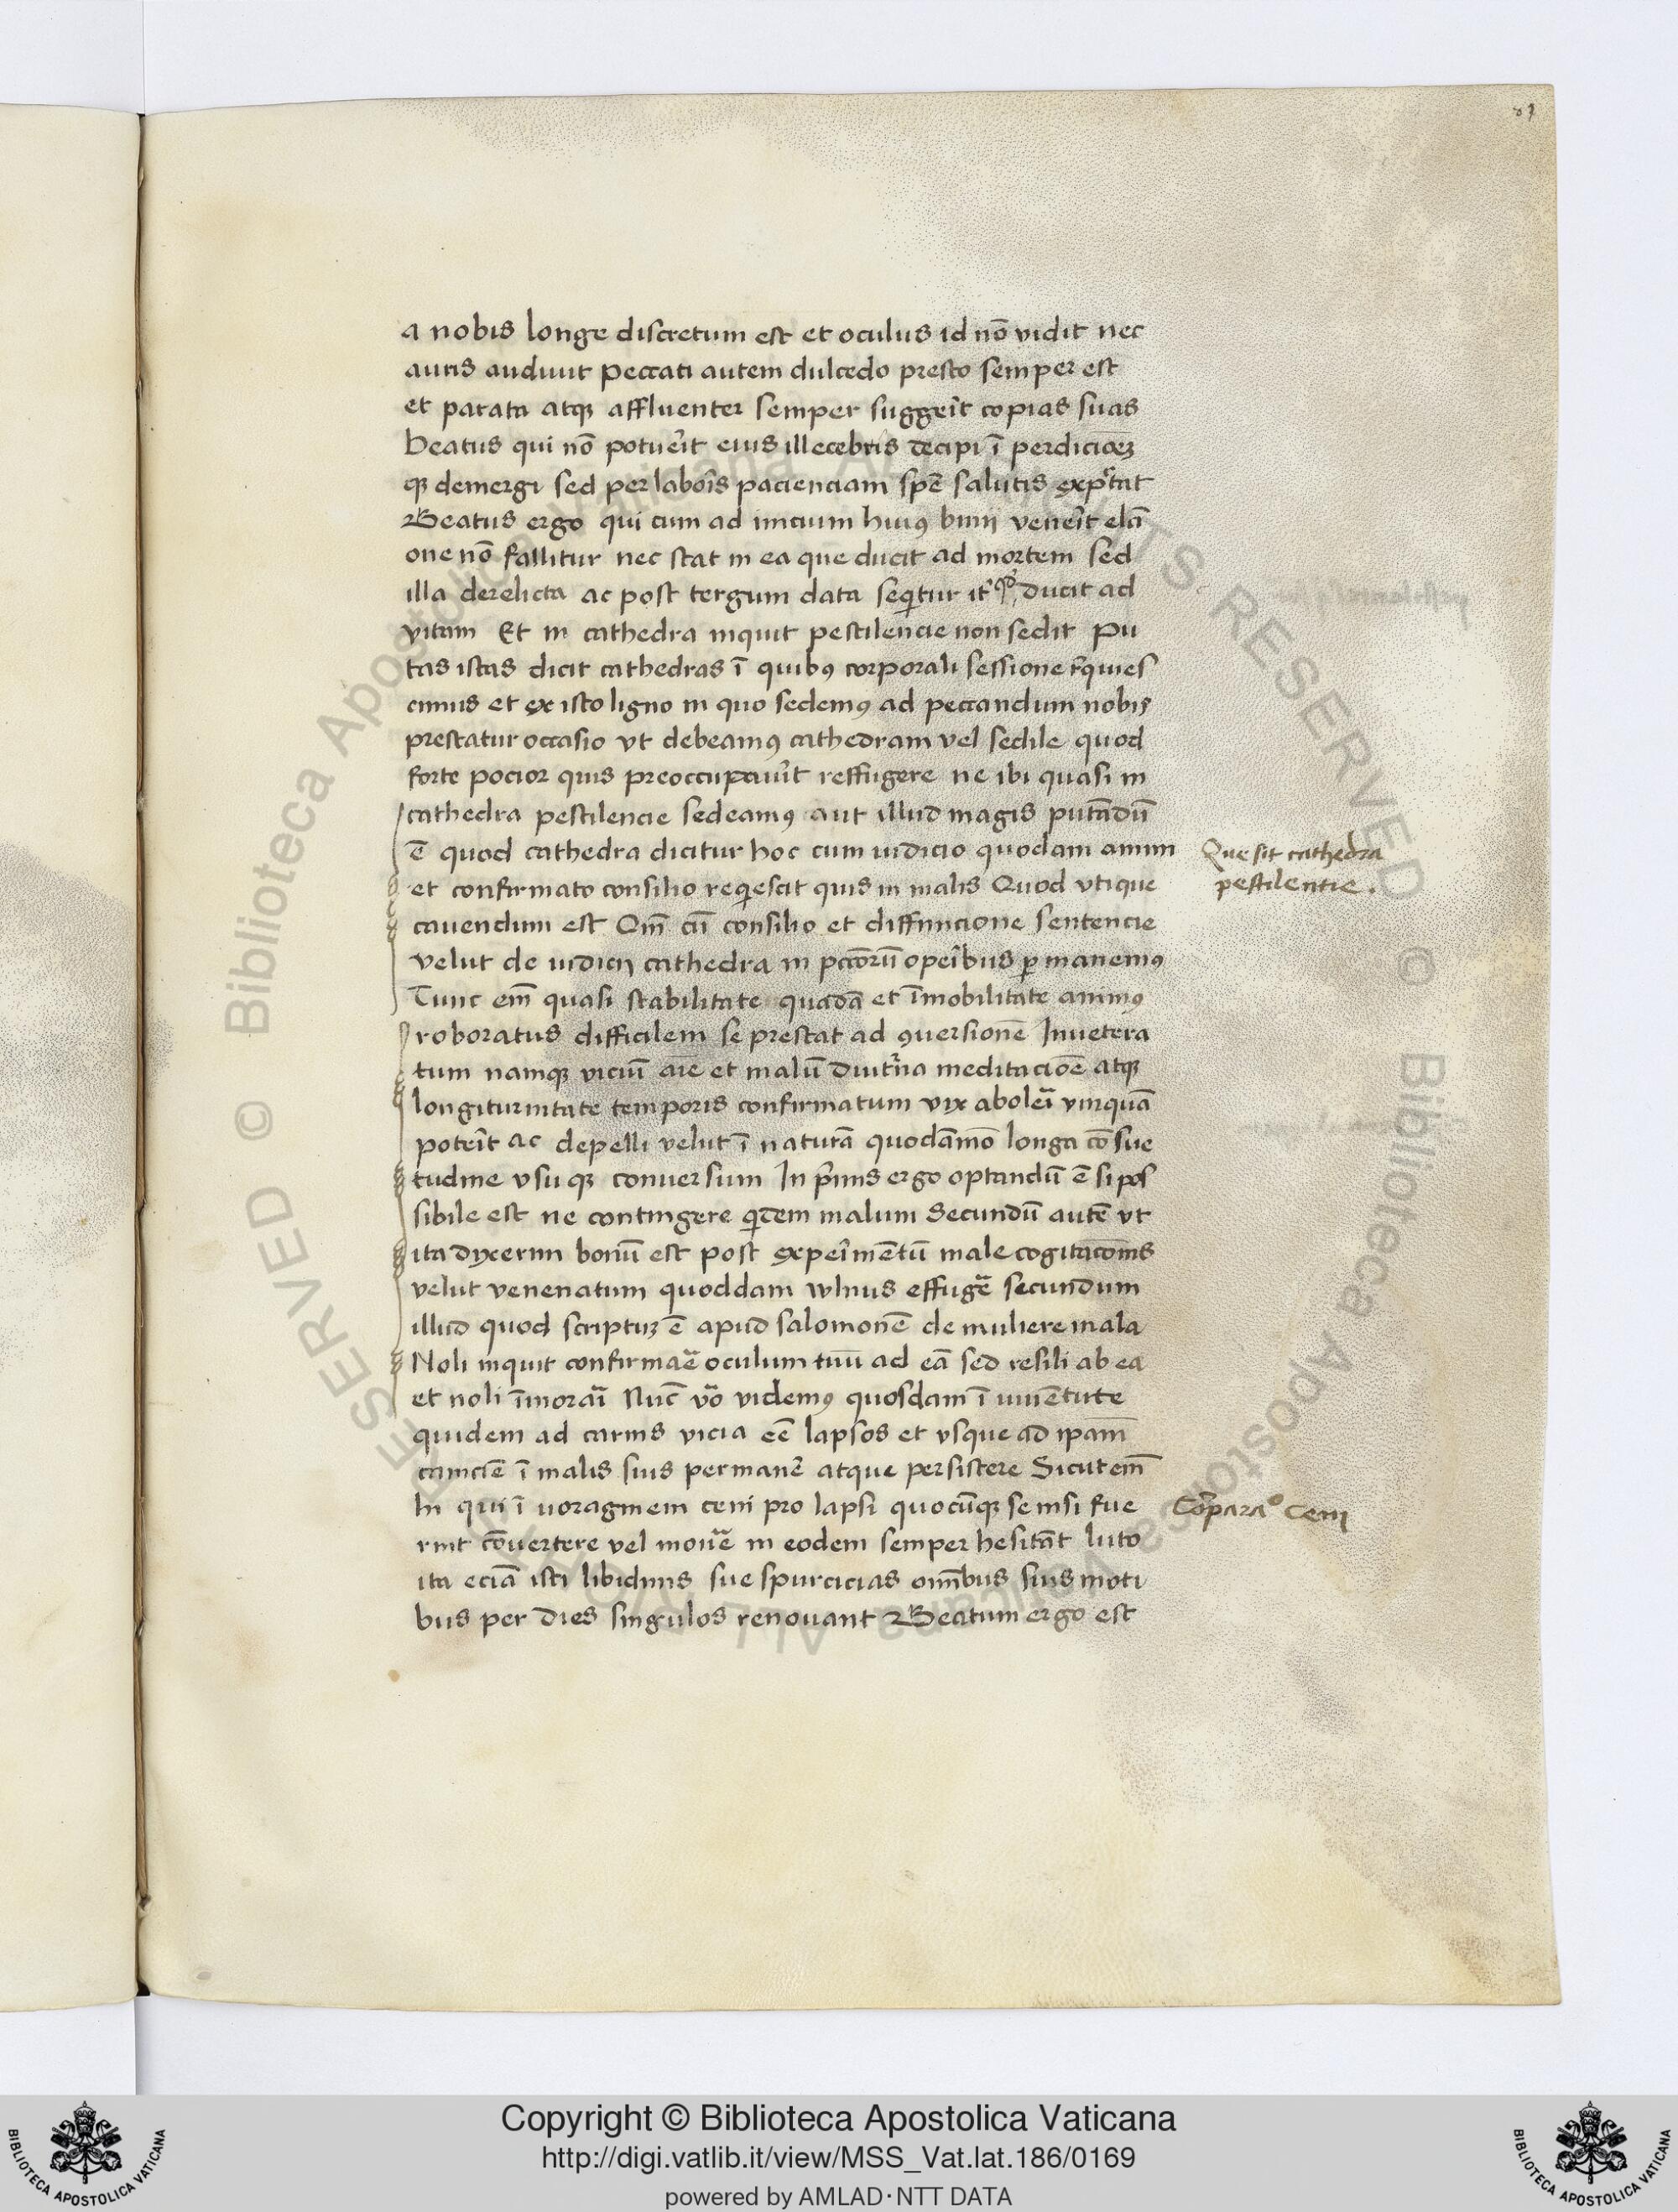 a nobis longe discretum est et oculus id nō vidit nec
auris audiuit Peccati autem dulcedo presto semper est
et parata atqꝫ affluenter semper suggerit copias suas
Beatus qui nō potuerit eius illecebris decipi ī perdicioēꝫ
qꝫ demergi sed per laboris pacienciam spē salutis expectat
Beatus ergo qui cum ad inicium huiꝰ biuij venerit
one nō fallitur nec stat in ea que ducit ad mortem sed
illa derelicta ac post tergum data seqitur it' qd' ducit ad
vitam Et in cathedra inquit pestilencie non sedit Pu
tas istas dicit cathedras ī quibꝰ corporali sessione rquies
cimus et ex isto ligno in quo sedemꝰ ad peccandum nobis
prestatur occasio vt debeamꝰ cathedram vel sedile quod
forte pocior quis preoccupauit reffugere ne ibi quasi in
cathedra pestilencie sedeamꝰ aut illud magis putādū
ē quod cathedra dicitur hoc cum iudicio quodam animi
et confirmato consilio reqiescit quis in malis Quod vtique
cauendum est Qm̄ cū consilio et diffinicione sentencie
velut de iudicij cathedra in pccōrū operibus ꝑmanemꝰ
Tunc em̄ quasi stabilitate quadā et īmobilitate animꝰ
roboratus difficilem se prestat ad ꝯuersionē Inuetera
tum namqꝫ viciū aīe et malū diut'na meditaciōe atqꝫ
longiturnitate temporis confirmatum vix aboleri vnquā
poterit ac depelli velut ī naturā quodāmō longa cōsue
tudine vsuqꝫ conuersum In primis ergo optandū ē si pos
sibile est ne contingere qidem malum Secundū autē vt
ita dyxerim bonū est post experimētū male cogitacōnis
velut venenatum quoddam wlnus effugē secundum
illud quod scriptuꝫ ē apud salomonē de muliere mala
Noli inquit confirmaē oculum tuū ad eā sed resili ab ea
et noli īmorari Nūc vō videmꝰ quosdam ī iuuētute
quidem ad carnis vicia eē lapsos et vsque ad ipam̄
caniciē ī malis suis permanē atque persistere Sicut em̄
hi qui ī uoraginem ceni prolapsi quocūqꝫ se nisi fue
rint cōuertere vel mouē in eodem semper hesitāt luto
ita eciā isti libidinis sue spurcicias om̄ibus suis moti
bus per dies singulos renouant Beatum ergo est
Que sit cathedra
pestilentie.
Cōparaº ceni
Copyright © Biblioteca Apostolica Vaticana
http://digi.vatlib.it/view/MSS_Vat.lat.186/0169
powered by AMLAD·NTT DATA
BIBLIOTECA APOSTOLICA VATICANA
BIBLIOTECA APOSTOLICA VATICANA